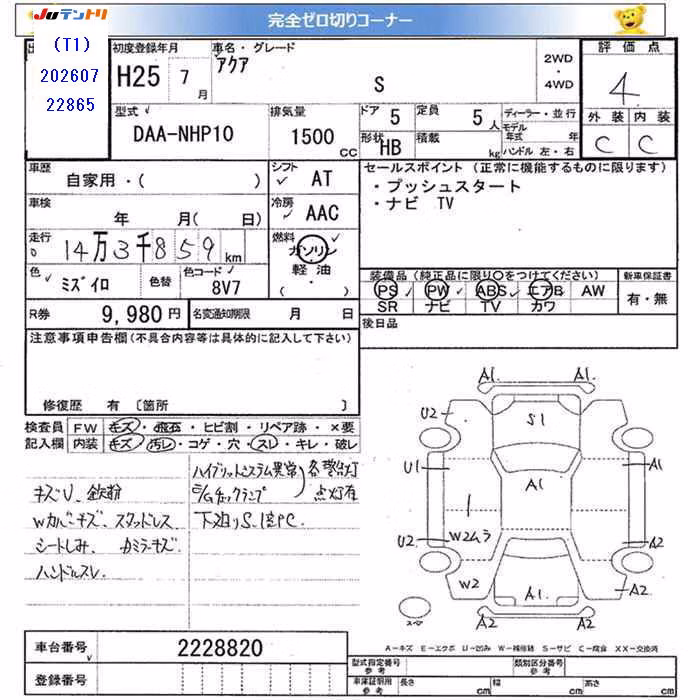 JUテントリ
完全ゼロ切りコーナー
(T1)
202607
22865
初度登録年月
H25 7 月
車名・グレード
アクア
S
2WD
・
4WD
評価点
4
外装 内装
C C
型式
DAA-NHP10
排気量
1500 CC
ドア 5
定員 5 人
形状 HB
積載 kg
ディーラー・並行
モデル年式 年
ハンドル 左・右
車歴
自家用・( )
シフト
AT
セールスポイント (正常に機能するものに限ります)
・プッシュスタート
・ナビ TV
車検
年 月( 日)
冷房
AAC
走行
14万3千859 km
燃料
ガソリン
軽油
・( )
色
ミズイロ
色替
色コード
8V7
装備品 (純正品に限り○をつけてください)
PS PW ABS エアB AW
SR ナビ TV カワ
新車保証書
有・無
R券
9,980 円
名変通知期限 月 日
後日品
注意事項申告欄 (不具合内容等は具体的に記入して下さい)
修復歴 有 〔箇所 〕
検査員 FW キズ・飛石・ヒビ割・リペア跡・×要
記入欄 内装 キズ・汚レ・コゲ・穴・スレ・キレ・破レ
キズU、鉄粉
Wカバーキズ、スタッドレス
シートしみ、カミラーキズ
ハンドルスレ
ハイブリットシステム異常
E/Gチェックランプ
各警告灯
点灯有
下廻りS、塗PC
A1. A1.
U2 S1
U1 A1 A1
W2ムラ
U2 A2
W2 A1. A2
A2 A2
スペア
A-キズ E-エクボ U-凹み W-補修跡 S-サビ C-腐食 XX-交換済
車台番号
2228820
登録番号
型式指定番号
参考
類別区分番号
参考
車庫証明用
参考
長さ cm 幅 cm 高さ cm